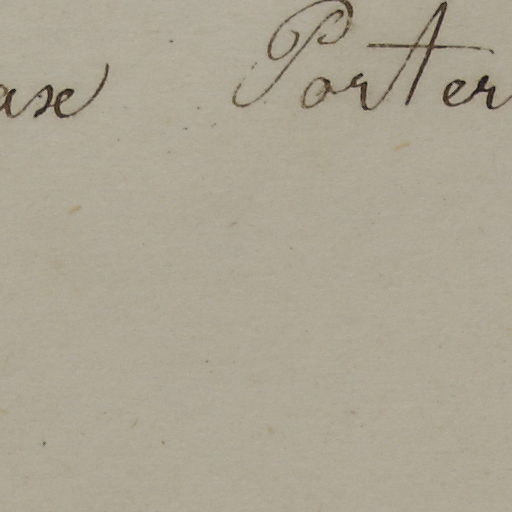 ase Porter